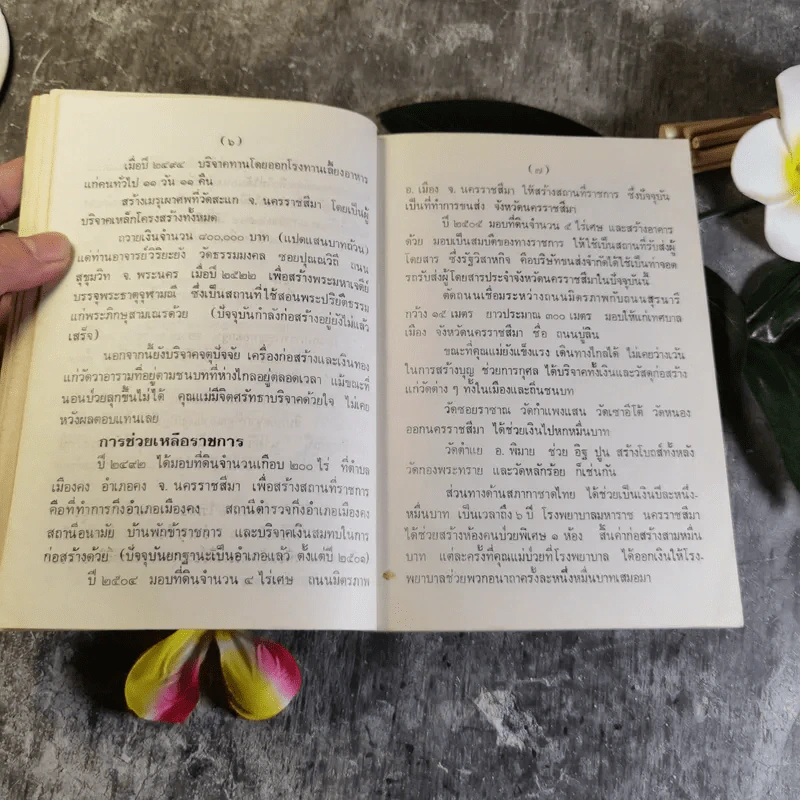 (๖)
เมื่อปี ๒๔๙๔ บริจาคทานโดยออกโรงทานเลี้ยงอาหาร
แก่คนทั่วไป ๑๑ วัน ๑๑ คืน
สร้างเมรุเผาศพที่วัดสะแก จ. นครราชสีมา โดยเป็นผู้
บริจาคเหล็กโครงสร้างทั้งหมด
ถวายเงินจำนวน ๘๐๐,๐๐๐ บาท (แปดแสนบาทถ้วน)
แด่ท่านอาจารย์วิริยะยัง วัดธรรมมงคล ซอยปุณณวิถี ถนน
สุขุมวิท จ. พระนคร เมื่อปี ๒๕๒๒ เพื่อสร้างพระมหาเจดีย์
บรรจุพระธาตุจุฬามณี ซึ่งเป็นสถานที่ใช้สอนพระปริยัติธรรม
แก่พระภิกษุสามเณรด้วย (ปัจจุบันกำลังก่อสร้างอยู่ยังไม่แล้ว
เสร็จ)
นอกจากนี้ยังบริจาคจตุปัจจัย เครื่องก่อสร้างและเงินทอง
แก่วัดวาอารามที่อยู่ตามชนบทที่ห่างไกลอยู่ตลอดเวลา แม้ขณะที่
นอนป่วยลุกขึ้นไม่ได้ คุณแม่มีจิตศรัทธาบริจาคด้วยใจ ไม่เคย
หวังผลตอบแทนเลย
การช่วยเหลือราชการ
ปี ๒๔๙๒ ได้มอบที่ดินจำนวนเกือบ ๒๐๐ ไร่ ที่ตำบล
เมืองคง อำเภอคง จ. นครราชสีมา เพื่อสร้างสถานที่ราชการ
คือที่ทำการกิ่งอำเภอเมืองคง สถานีตำรวจกิ่งอำเภอเมืองคง
สถานีอนามัย บ้านพักข้าราชการ และบริจาคเงินสมทบในการ
ก่อสร้างด้วย (ปัจจุบันยกฐานะเป็นอำเภอแล้ว ตั้งแต่ปี ๒๕๐๑)
ปี ๒๕๐๔ มอบที่ดินจำนวน ๔ ไร่เศษ ถนนมิตรภาพ
(๗)
อ. เมือง จ. นครราชสีมา ให้สร้างสถานที่ราชการ ซึ่งปัจจุบัน
เป็นที่ทำการขนส่ง จังหวัดนครราชสีมา
ปี ๒๕๐๕ มอบที่ดินจำนวน ๕ ไร่เศษ และสร้างอาคาร
ด้วย มอบเป็นสมบัติของทางราชการ ให้ใช้เป็นสถานที่รับส่งผู้
โดยสาร ซึ่งรัฐวิสาหกิจ คือบริษัทขนส่งจำกัดได้ใช้เป็นท่าจอด
รถรับส่งผู้โดยสารประจำจังหวัดนครราชสีมาในปัจจุบันนี้
ตัดถนนเชื่อมระหว่างถนนมิตรภาพกับถนนสุรนารี
กว้าง ๑๕ เมตร ยาวประมาณ ๓๐๐ เมตร มอบให้แก่เทศบาล
เมือง จังหวัดนครราชสีมา ชื่อ ถนนปู่ลิน
ขณะที่คุณแม่ยังแข็งแรง เดินทางไกลได้ ไม่เคยว่างเว้น
ในการสร้างบุญ ช่วยการกุศล ได้บริจาคทั้งเงินและวัสดุก่อสร้าง
แก่วัดต่าง ๆ ทั้งในเมืองและถิ่นชนบท
วัดซอยราชาณ วัดกำแพงแสน วัดเซาอีโต้ วัดหนอง
ออกนครราชสีมา ได้ช่วยเงินไปหกหมื่นบาท
วัดตำแย อ. พิมาย ช่วย อิฐ ปูน สร้างโบสถ์ทั้งหลัง
วัดกองพระทราย และวัดหลักร้อย ก็เช่นกัน
ส่วนทางด้านสภากาชาดไทย ได้ช่วยเป็นเงินปีละหนึ่ง-
หมื่นบาท เป็นเวลาถึง ๖ ปี โรงพยาบาลมหาราช นครราชสีมา
ได้ช่วยสร้างห้องคนป่วยพิเศษ ๑ ห้อง สิ้นค่าก่อสร้างสามหมื่น
บาท แต่ละครั้งที่คุณแม่ป่วยที่โรงพยาบาล ได้ออกเงินให้โรง-
พยาบาลช่วยพวกอนาถาครั้งละหนึ่งหมื่นบาทเสมอมา